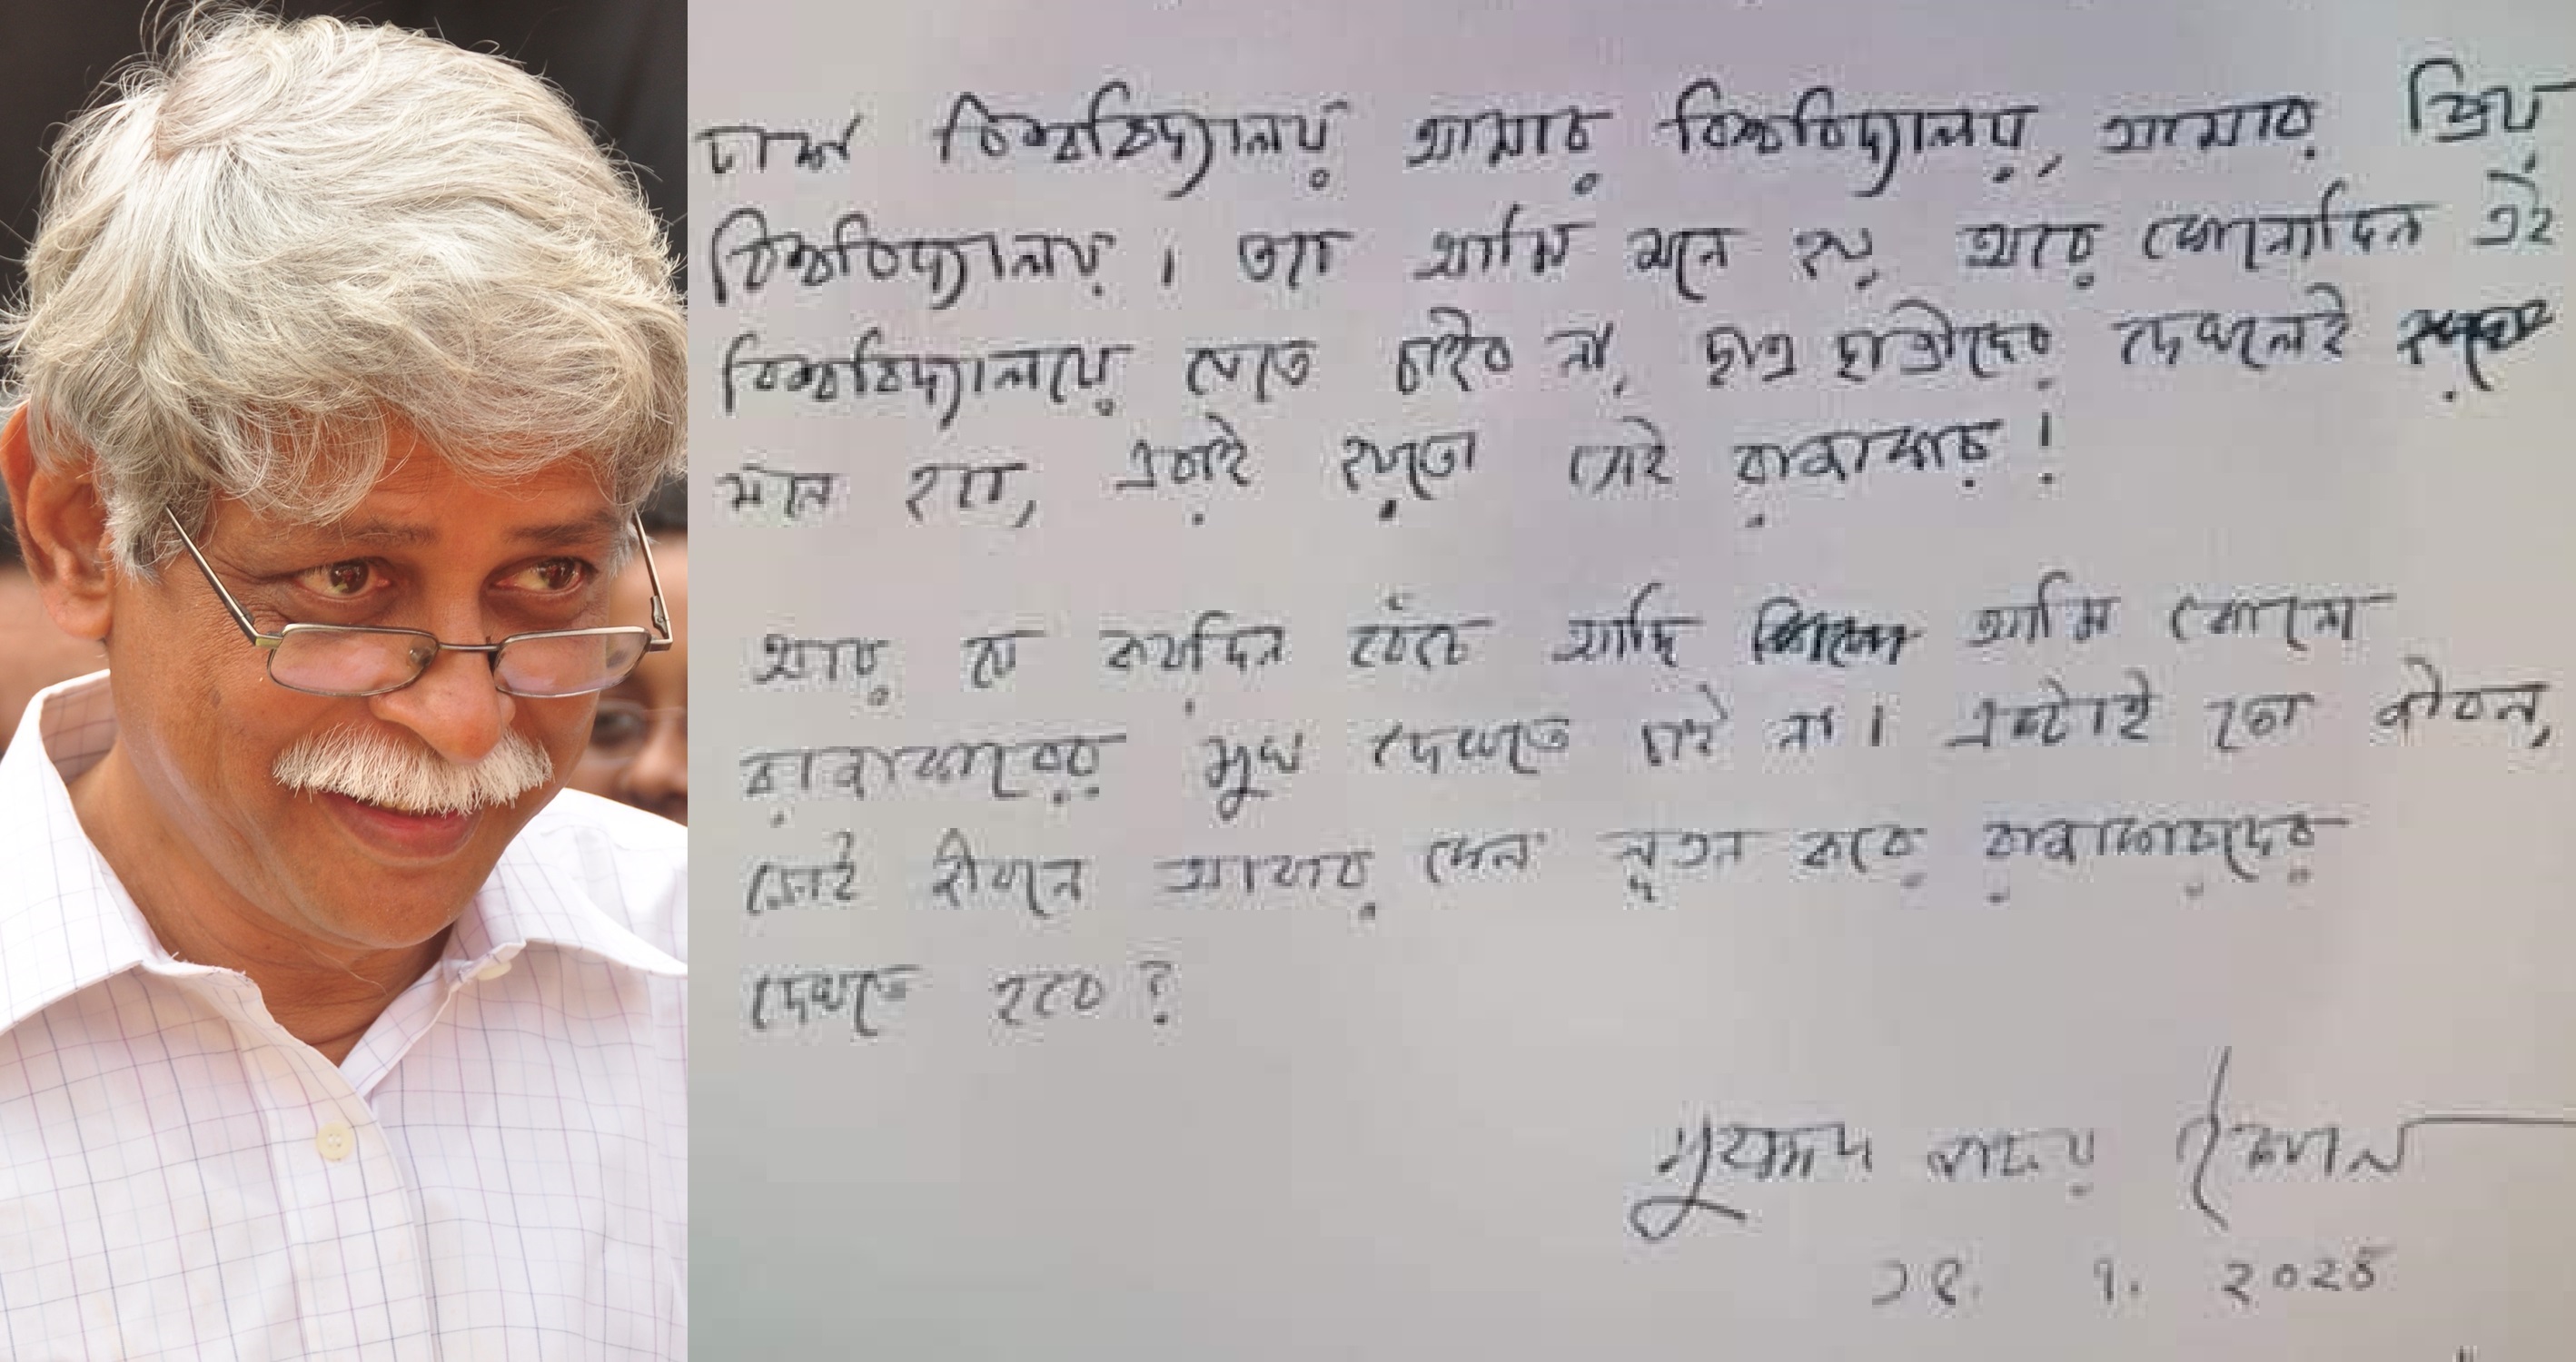 ঢাকা বিশ্ববিদ্যালয় আমার বিশ্ববিদ্যালয়, আমার প্রিয়
বিশ্ববিদ্যালয়। তবে আমি মনে হয়, আর কোনোদিন এই
বিশ্ববিদ্যালয়ে যেতে চাইব না, ছাত্র ছাত্রীদের দেখলেই
মনে হবে, এরাই হয়তো সেই রাজাকার!
আর যে কয়দিন বেঁচে আছি আমি কোনো
রাজাকারের মুখ দেখতে চাই না। একটাই তো জীবন,
সেই জীবনে আবার কেন নূতন করে রাজাকারদের
দেখতে হবে?
মুহম্মদ জাফর ইকবাল
১৪. ৭. ২০২৪